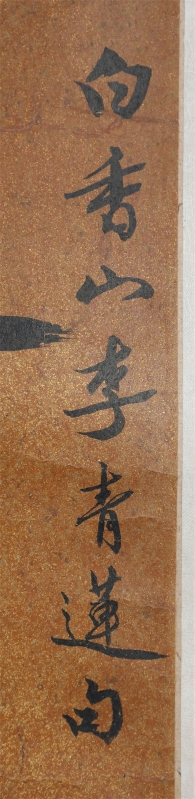 白香山李青蓮句